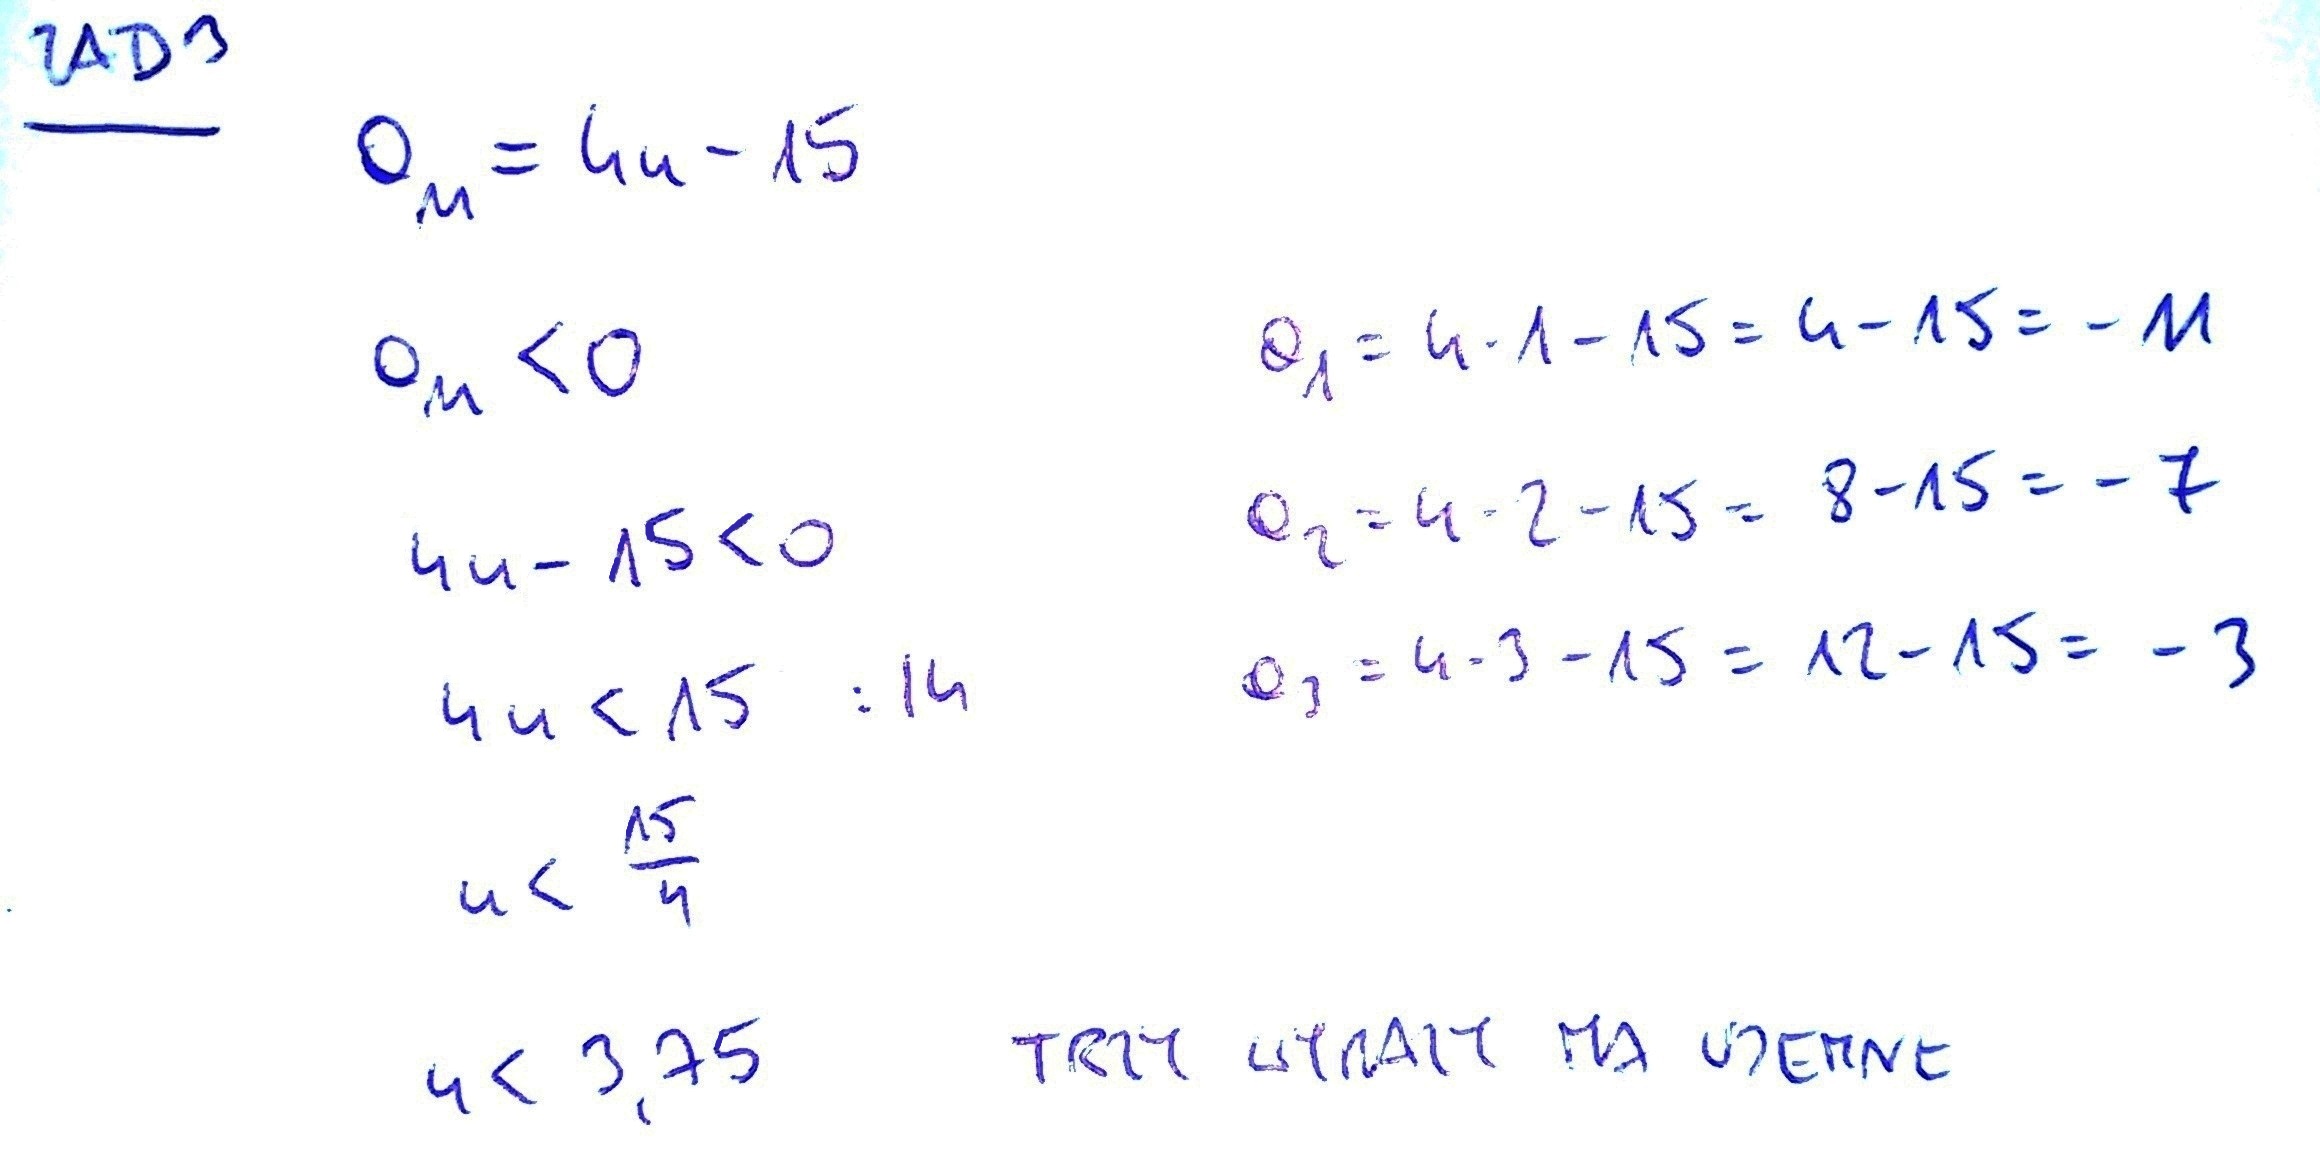 ZAD 3
aₙ = 4n - 15
aₙ < 0
4n - 15 < 0
4n < 15 : |4
n < 15/4
n < 3,75
a₁ = 4·1 - 15 = 4 - 15 = -11
a₂ = 4·2 - 15 = 8 - 15 = -7
a₃ = 4·3 - 15 = 12 - 15 = -3
TRZY WYRAZY MA UJEMNE